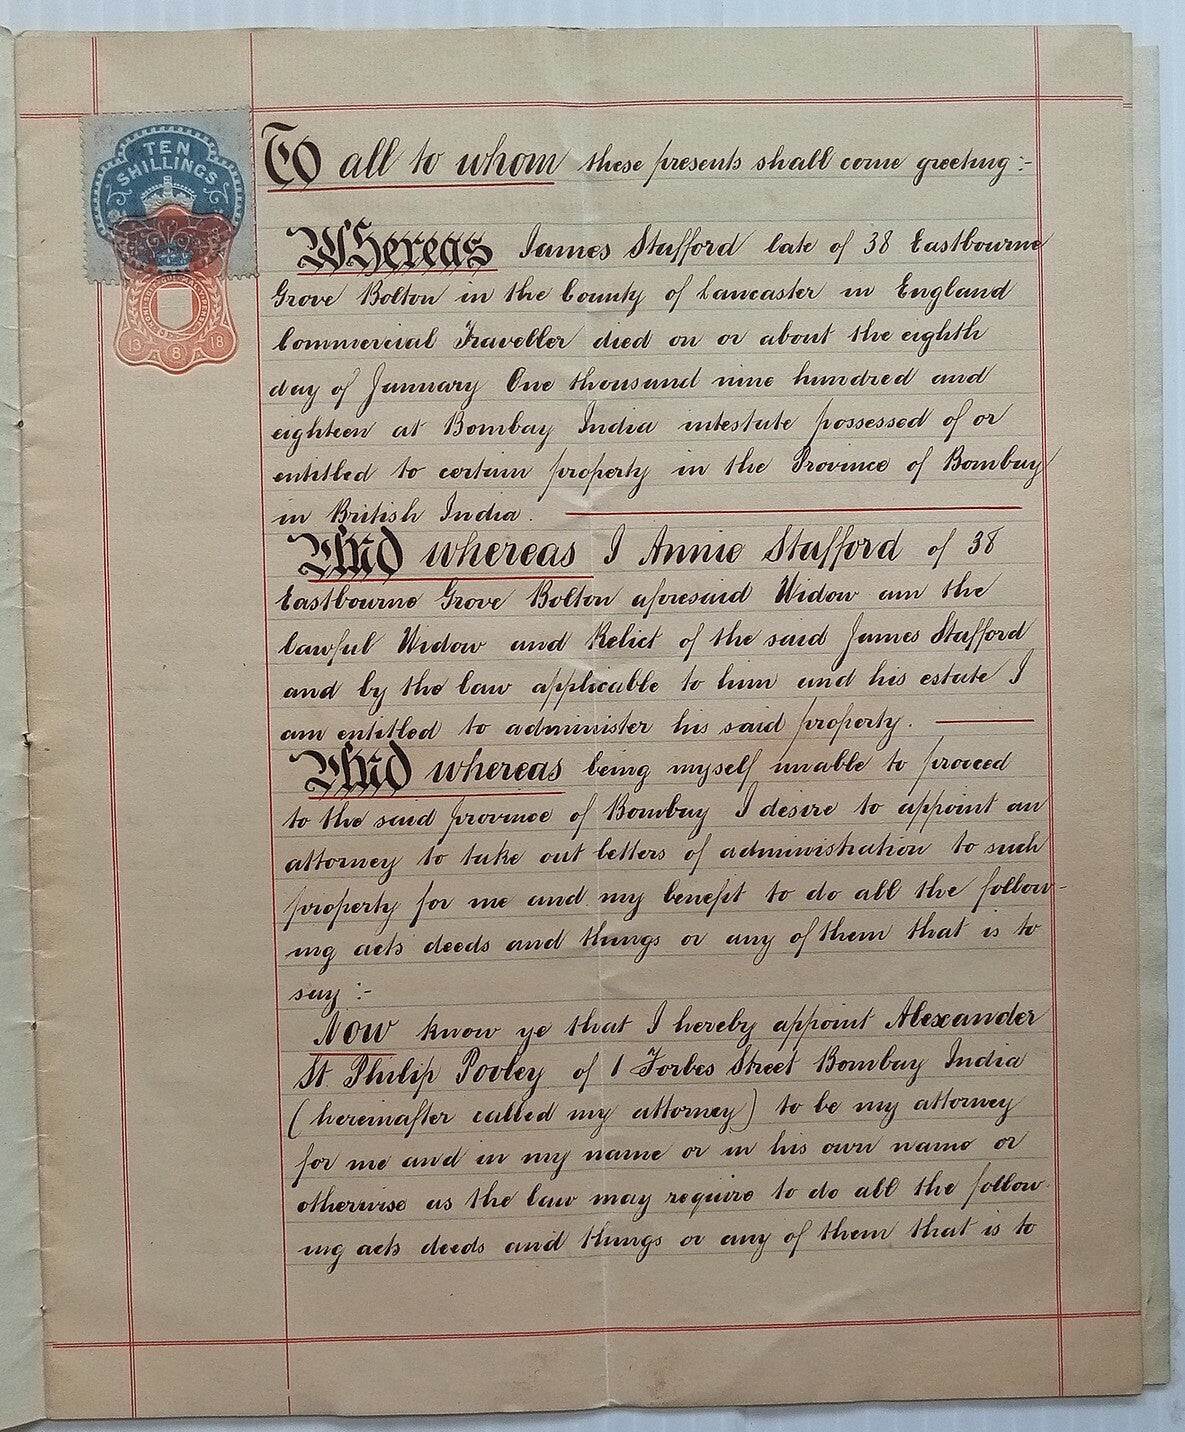 TEN
SHILLINGS
HONI SOIT QUI MAL Y PENSE
13 8 18
To all to whom these presents shall come greeting :-
Whereas James Stafford late of 38 Eastbourne
Grove Bolton in the County of Lancaster in England
Commercial Traveller died on or about the eighth
day of January One thousand nine hundred and
eighteen at Bombay India intestate possessed of or
entitled to certain property in the Province of Bombay
in British India.
And whereas I Annie Stafford of 38
Eastbourne Grove Bolton aforesaid Widow am the
lawful Widow and Relict of the said James Stafford
and by the law applicable to him and his estate I
am entitled to administer his said property.
And whereas being myself unable to proceed
to the said province of Bombay I desire to appoint an
attorney to take out letters of administration to such
property for me and my benefit to do all the follow-
ing acts deeds and things or any of them that is to
say :-
Now know ye that I hereby appoint Alexander
St. Philip Pooley of 1 Forbes Street Bombay India
(hereinafter called my attorney) to be my attorney
for me and in my name or in his own name or
otherwise as the law may require to do all the follow-
ing acts deeds and things or any of them that is to